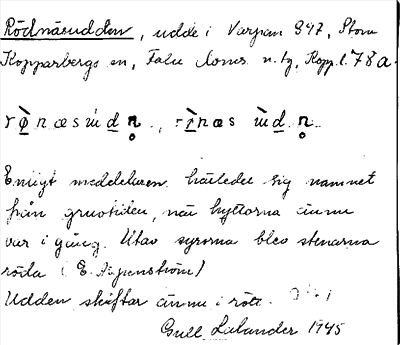 Rödnäsudden, udde i Varpan 847, Stora
Kopparbergs sn, Falu doms. n. tg, Kopp. l. 78 a.
Enligt meddelaren härleder sig namnet
från gruvtiden, när hyttorna ännu
var i gång. Utav syrorna blev stenarna
röda (E.
Udden skiftar ännu i rött.
Gull Lalander 1945